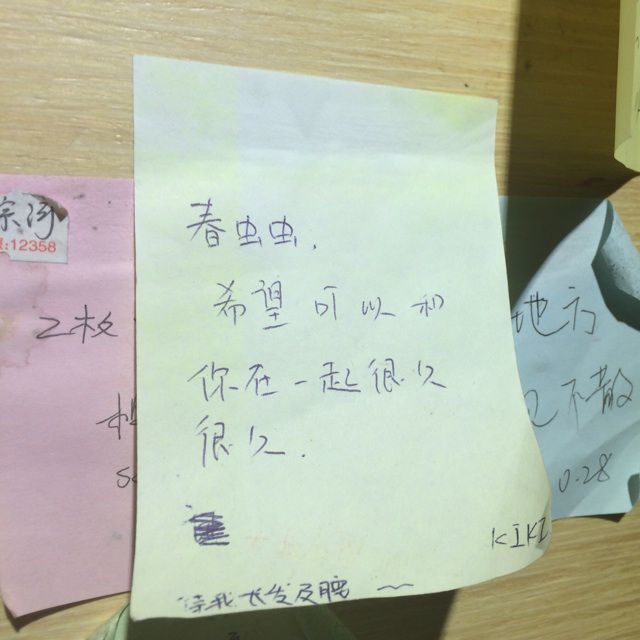 春虫虫.
希望可以和
你在一起很久
很久.
KIKI
待我长发及腰 ~
:12358
地方
不散
0.28